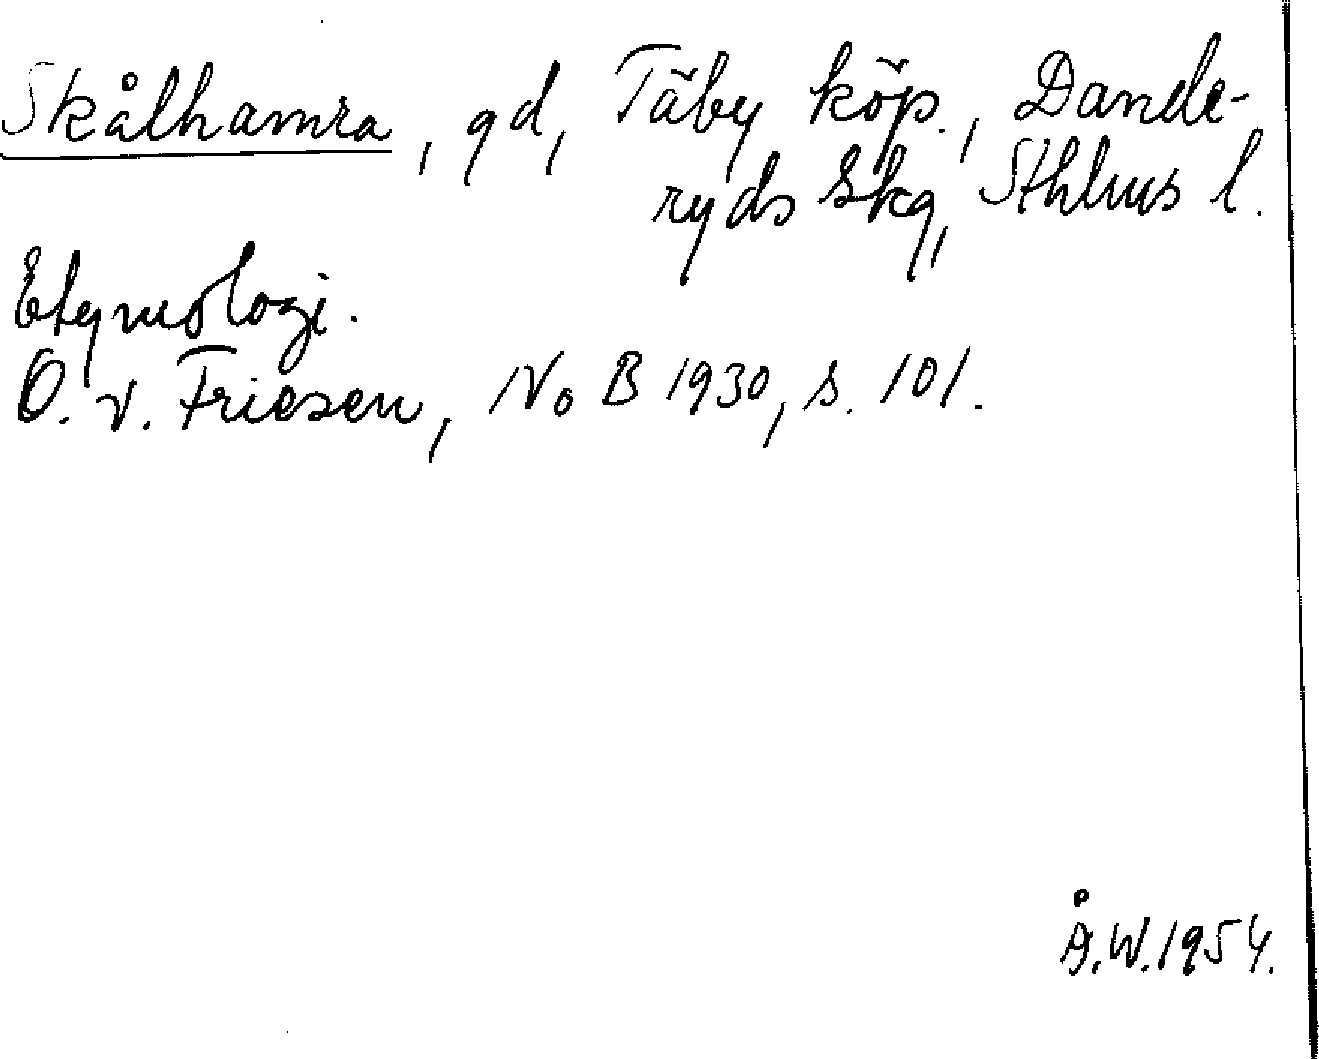 Skålhamra, gd, Täby köp., Dande-
ryds Skg, Sthlms l.
Etymologi.
O. v. Friesen, NoB 1930, s. 101.
Å.W. 1954.